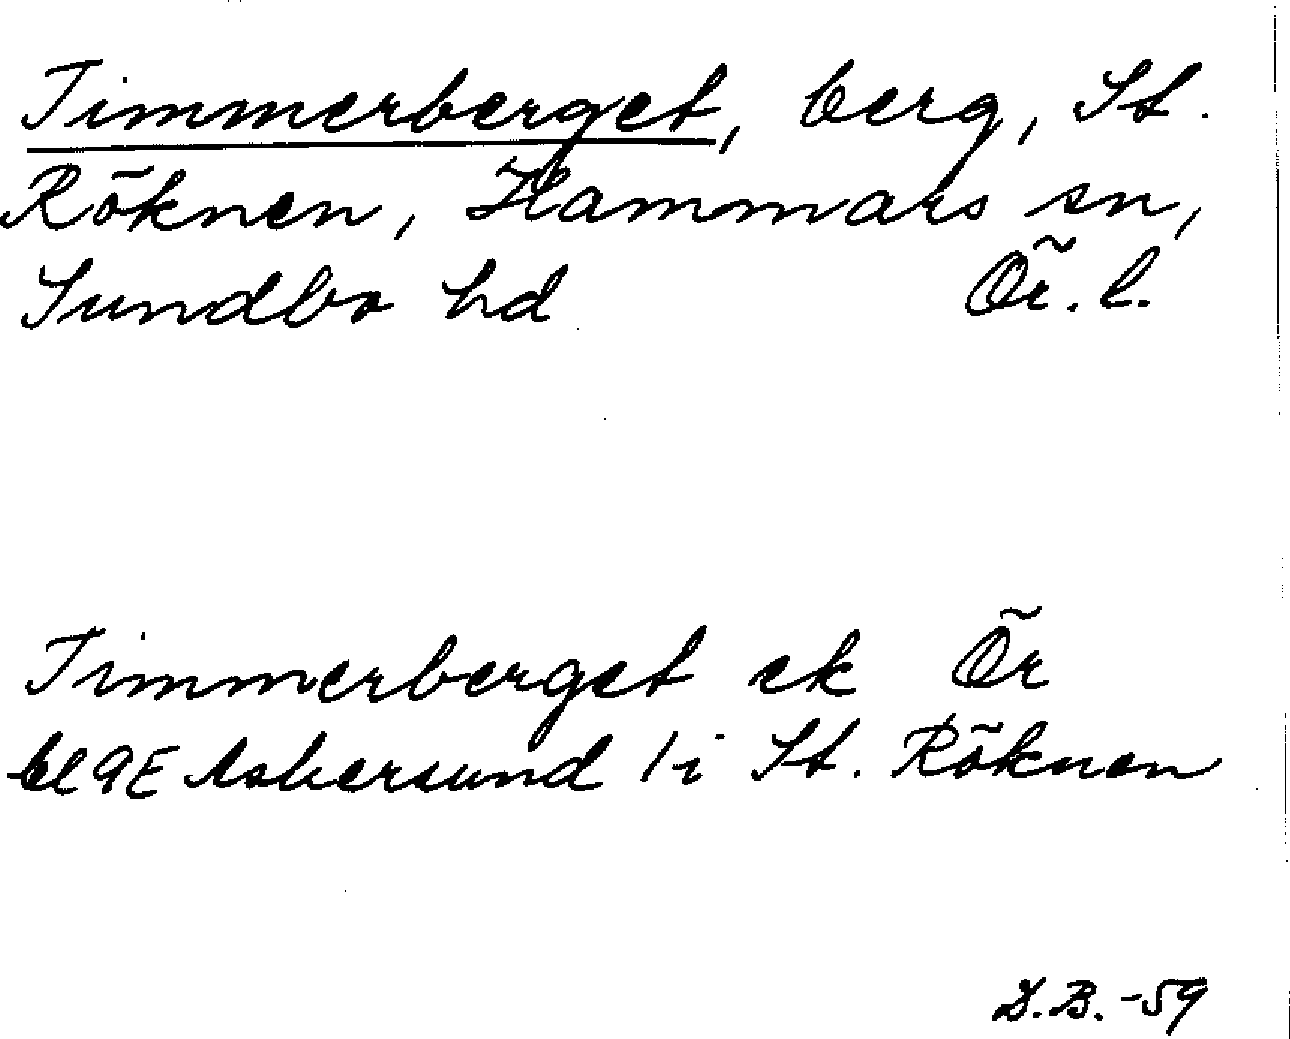 Timmerberget, berg, St.
Röknen, Hammars sn,
Sundbo hd Ör. l.
Timmerberget ek Ör
bl 9E Askersund 1 i St. Röknen
D.B. -59